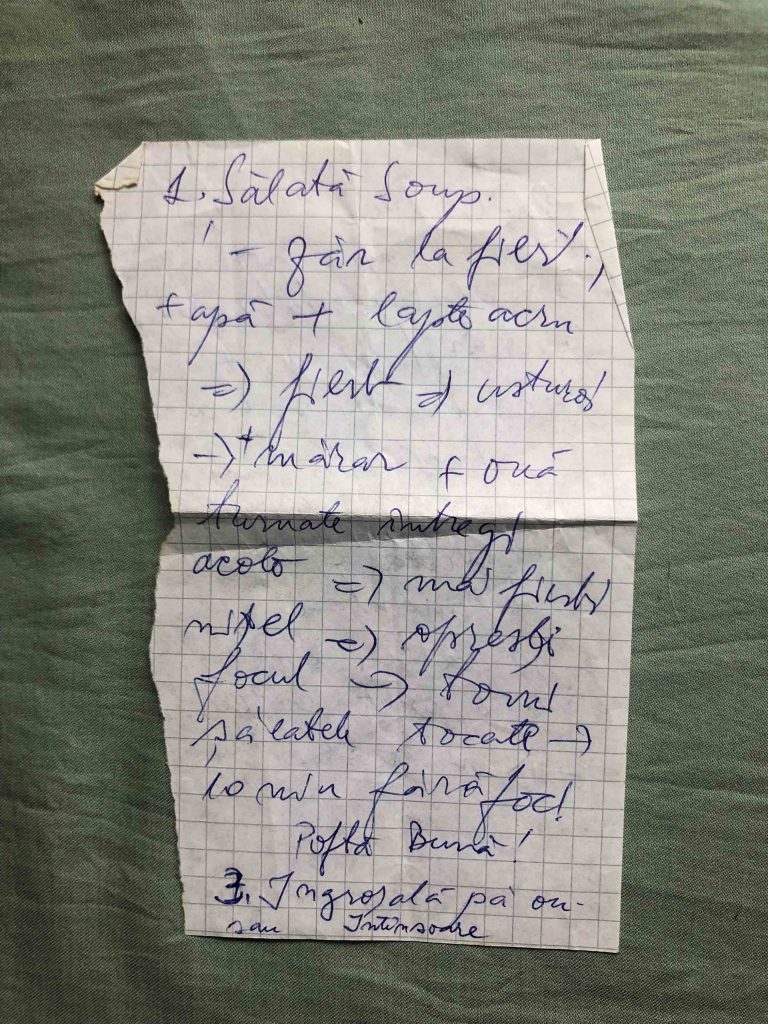 1. Sălată Soup.
- zăr la fiert,
+ apă + lapte acru
=> fierb => usturoi
-> + mărar + ouă
turnate întregi
acolo => mai fierbi
nițel => oprești
focul -> torni
sălatele tocate ->
10 min fără foc!
Poftă Bună!
3. Ingroșală pă ou-
sau Intinsoare